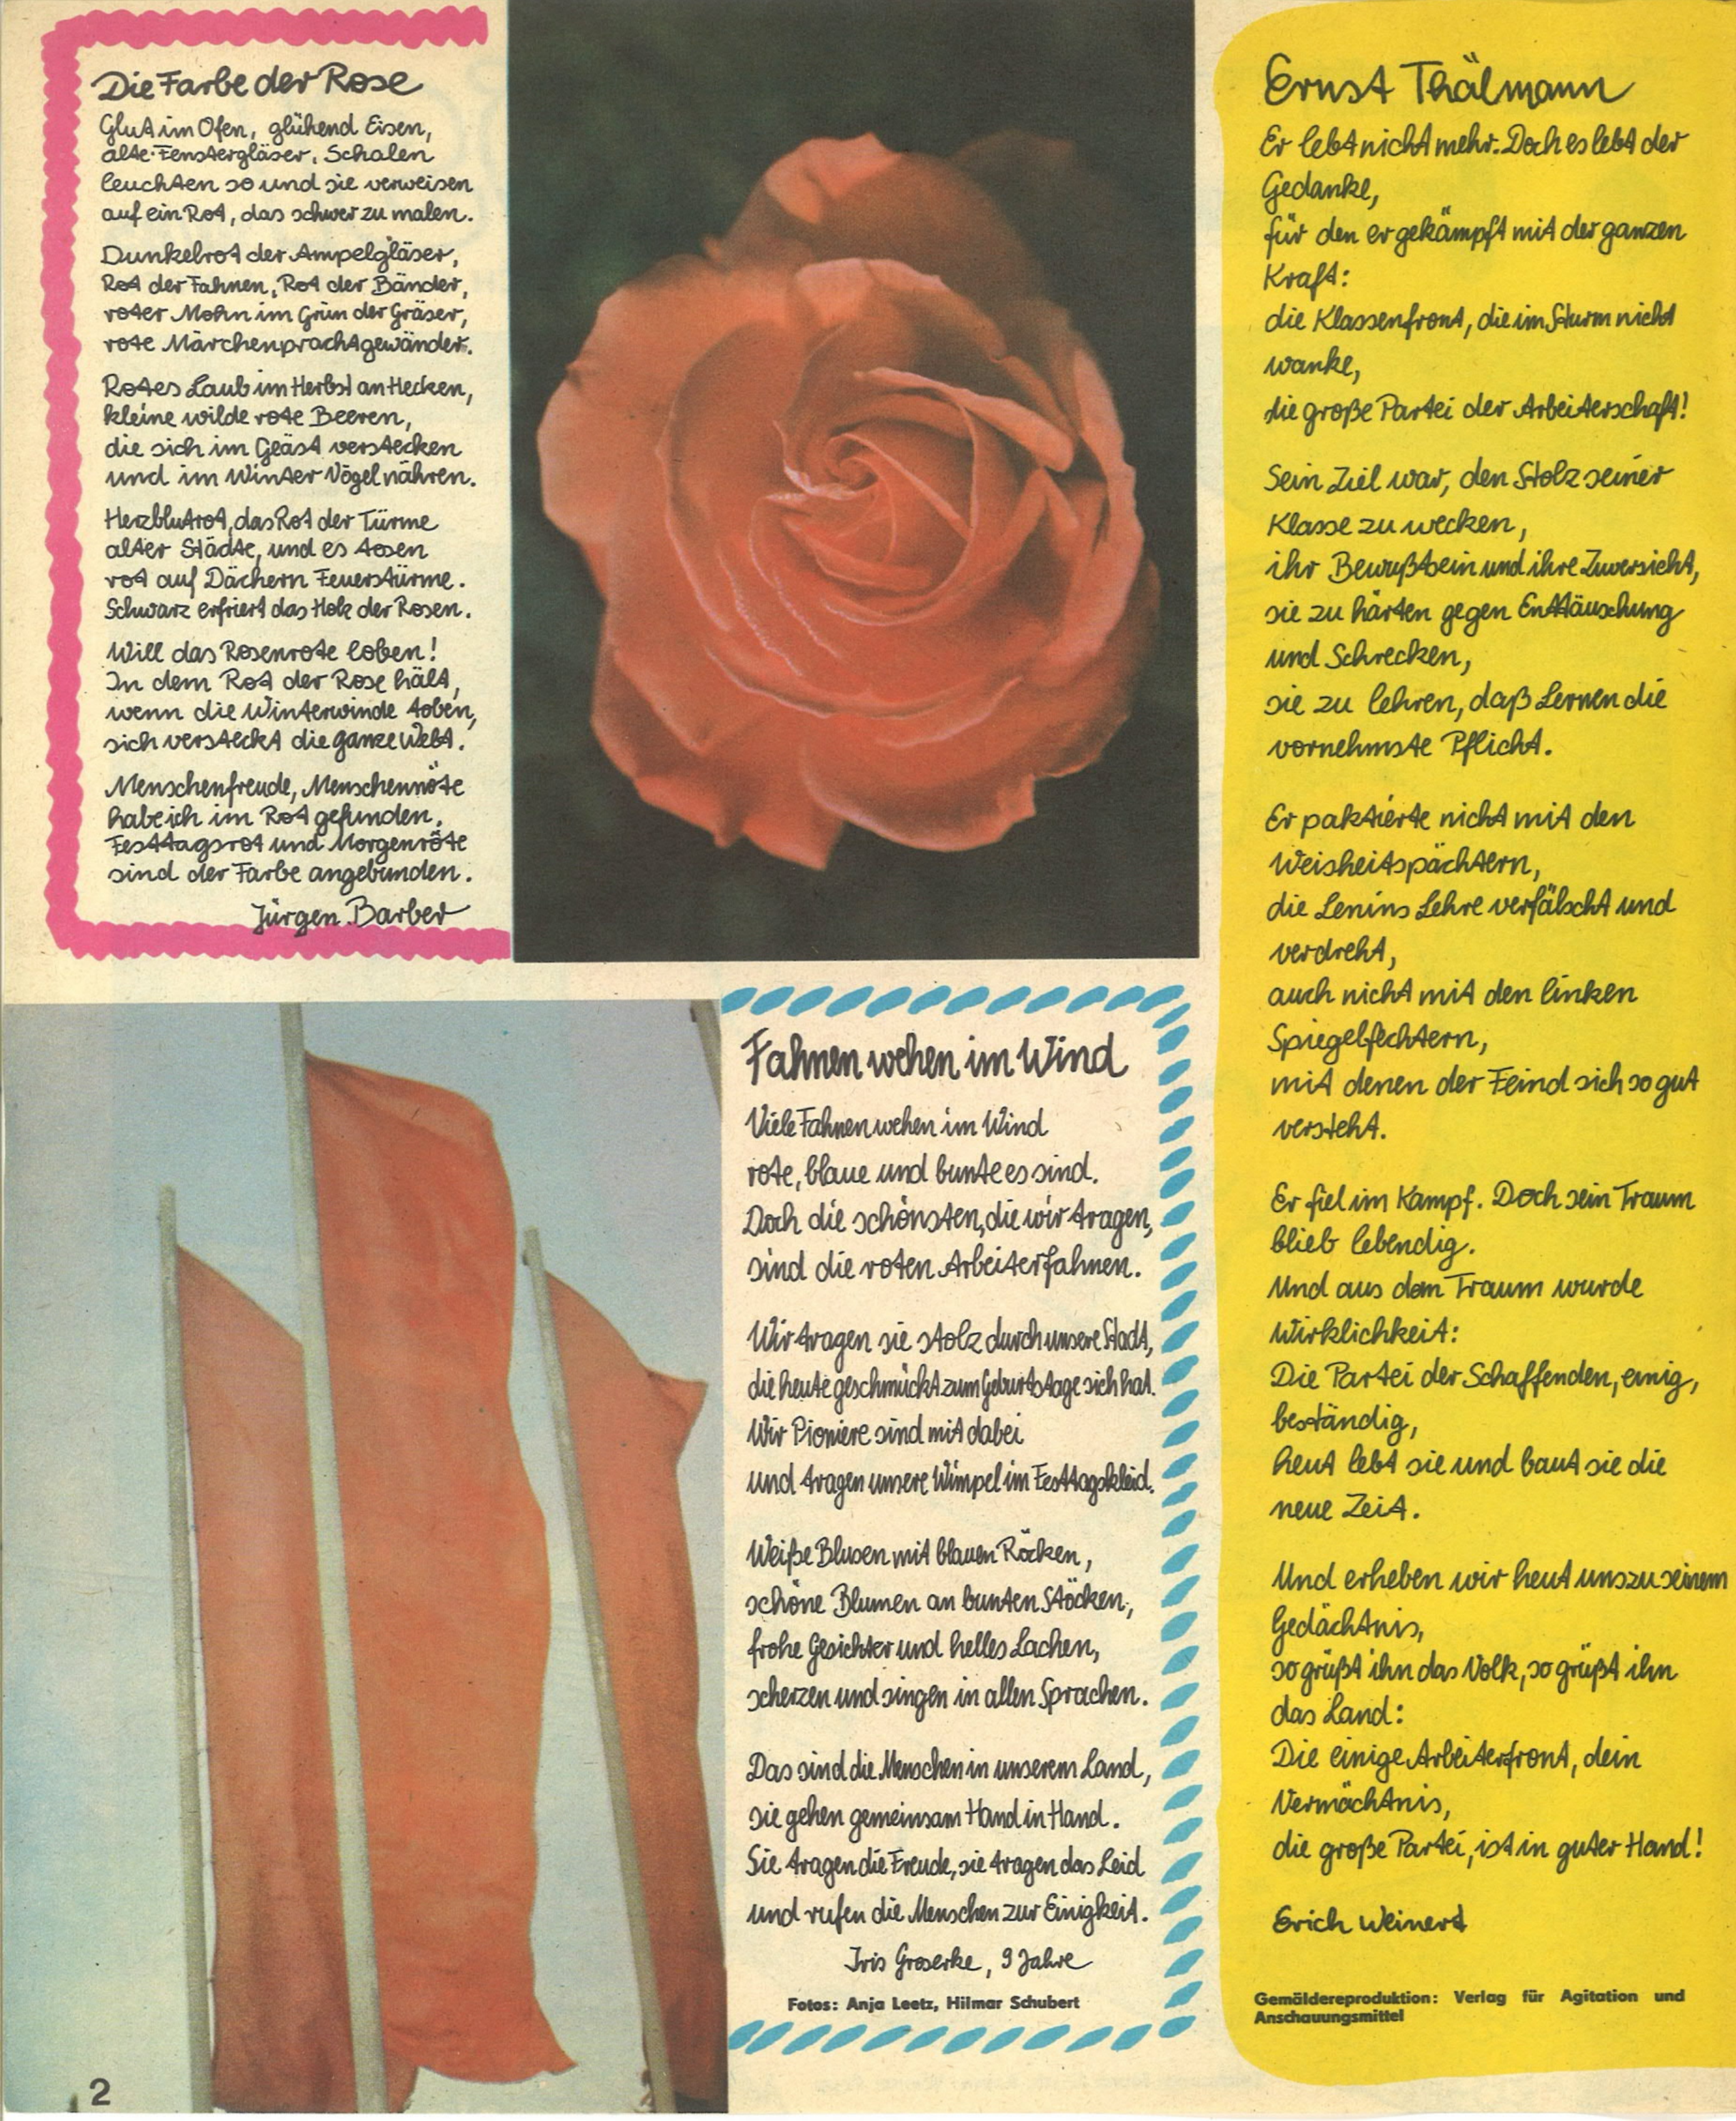 Die Farbe der Rose
Glut im Ofen, glühend Eisen,
alte Fenstergläser, Schalen
leuchten so und sie verweisen
auf ein Rot, das schwer zu malen.
Dunkelrot der Ampelgläser,
Rot der Fahnen, Rot der Bänder,
roter Mohn im Grün der Gräser,
rote Märchenprachtgewänder.
Rotes Laub im Herbst an Hecken,
kleine wilde rote Beeren,
die sich im Geäst verstecken
und im Winter Vögel nähren.
Herzblutrot, das Rot der Türme
alter Städte, und es tosen
rot auf Dächern Feuerstürme.
Schwarz erfriert das Holz der Rosen.
Will das Rosenrote loben!
In dem Rot der Rose hält,
wenn die Winterwinde toben,
sich versteckt die ganze Welt.
Menschenfreude, Menschennöte
habe ich im Rot gefunden.
Festtagsrot und Morgenröte
sind der Farbe angebunden.
Jürgen Barber
Fahnen wehen im Wind
Viele Fahnen wehen im Wind
rote, blaue und bunte es sind.
Doch die schönsten, die wir tragen,
sind die roten Arbeiterfahnen.
Wir tragen sie stolz durch unsere Stadt,
die heute geschmückt zum Geburtstage sich hat.
Wir Pioniere sind mit dabei
und tragen unsere Wimpel im Festtagskleid.
Weiße Blusen mit blauen Röcken,
schöne Blumen an bunten Stöcken,
frohe Gesichter und helles Lachen,
scherzen und singen in allen Sprachen.
Das sind die Menschen in unserem Land,
sie gehen gemeinsam Hand in Hand.
Sie tragen die Freude, sie tragen das Leid
und rufen die Menschen zur Einigkeit.
Iris Groserke, 9 Jahre
Fotos: Anja Leetz, Hilmar Schubert
Ernst Thälmann
Er lebt nicht mehr. Doch es lebt der
Gedanke,
für den er gekämpft mit der ganzen
Kraft:
die Klassenfront, die im Sturm nicht
wanke,
die große Partei der Arbeiterschaft!
Sein Ziel war, den Stolz seiner
Klasse zu wecken,
ihr Bewußtsein und ihre Zuversicht,
sie zu härten gegen Enttäuschung
und Schrecken,
sie zu lehren, daß Lernen die
vornehmste Pflicht.
Er paktierte nicht mit den
Weisheitspächtern,
die Lenins Lehre verfälscht und
verdreht,
auch nicht mit den linken
Spiegelfechtern,
mit denen der Feind sich so gut
versteht.
Er fiel im Kampf. Doch sein Traum
blieb lebendig.
Und aus dem Traum wurde
Wirklichkeit:
Die Partei der Schaffenden, einig,
beständig,
heut lebt sie und baut sie die
neue Zeit.
Und erheben wir heut uns zu seinem
Gedächtnis,
so grüßt ihn das Volk, so grüßt ihn
das Land:
Die einige Arbeiterfront, dein
Vermächtnis,
die große Partei, ist in guter Hand!
Erich Weinert
Gemäldereproduktion: Verlag für Agitation und
Anschauungsmittel
2